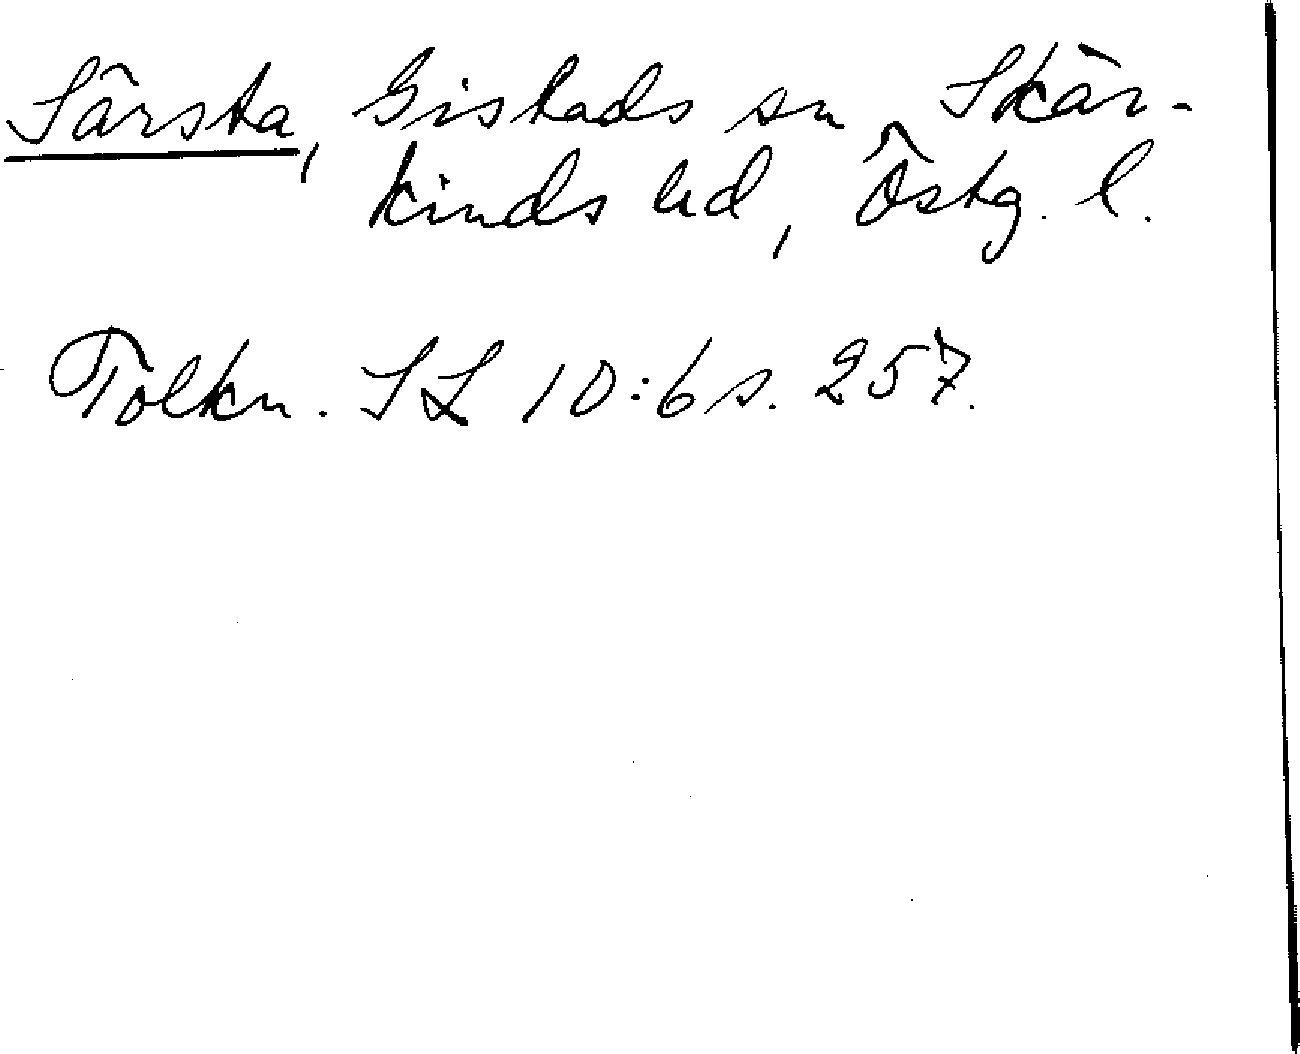 Särsta, Gistads sn Skär-
kinds hd, Östg. l.
Tolkn. SL 10:6 s. 257.